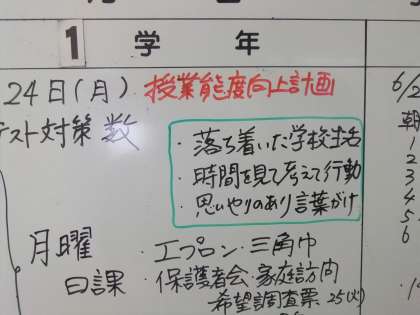 1 学年
24日(月) 授業態度向上計画
テスト対策 数
・落ち着いた学校生活
・時間を見て考えて行動
・思いやりのあり言葉がけ
月曜 ・エプロン・三角巾
日課 ・保護者会・家庭訪問
希望調査票 25(火)
6/2
朝
1
2
3
4
5
6